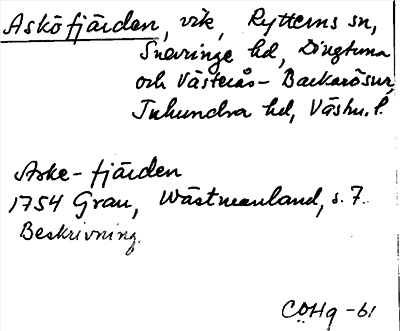 Asköfjärden, vik, Rytterns sn,
Snevringe hd, Dingtuna
och Västerås-Barkarö snr,
Tuhundra hd, Västm. l.
Aske-fjärden
1754 Grau, Wästmanland, s. 7.
Beskrivning.
COHg -61